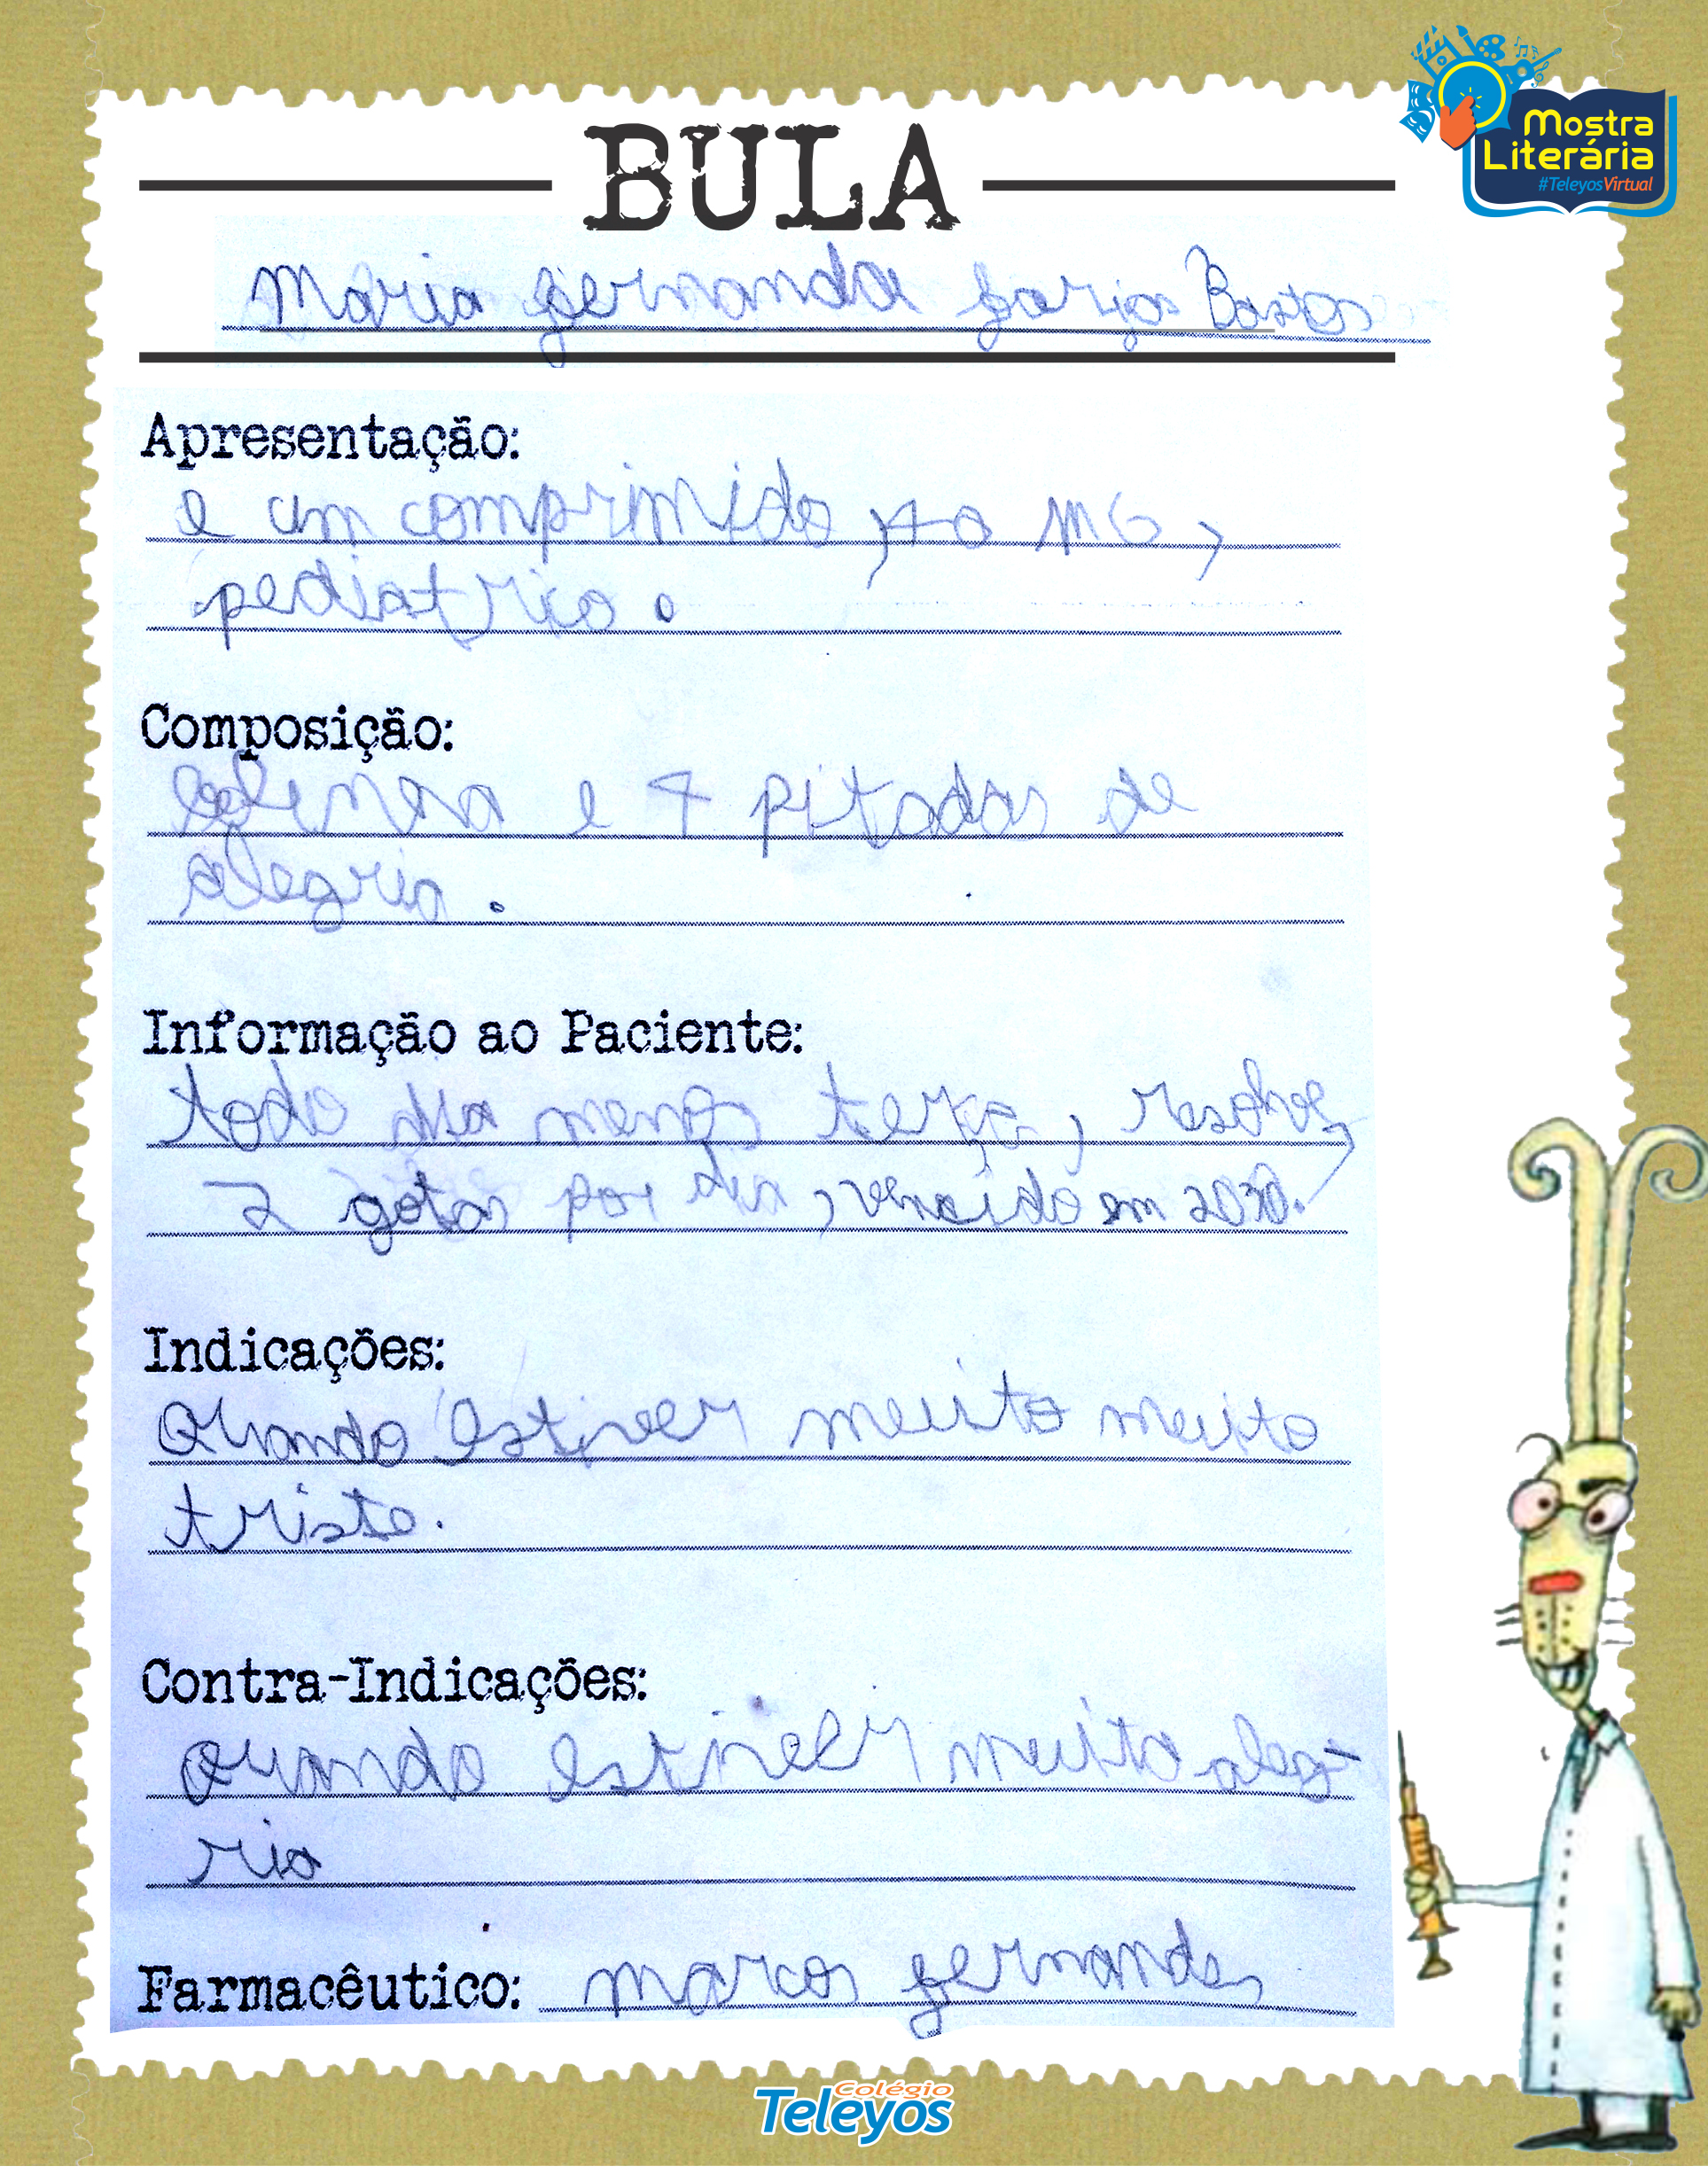 Mostra
Literária
#TeleyosVirtual
BULA
Maria fernanda farias Bastos
Apresentação:
e um comprimido, 40 MG,
pediatrico.
Composição:
e 4 pitadas de
alegria.
Informação ao Paciente:
todo dia menos terça, resolve,
2 gotas por dia, vencido em 2030.
Indicações:
Quando estiver muito muito
triste.
Contra-Indicações:
Quando estiver muito aleg-
ria
Farmacêutico: marcos fernandes
Colégio
Teleyos